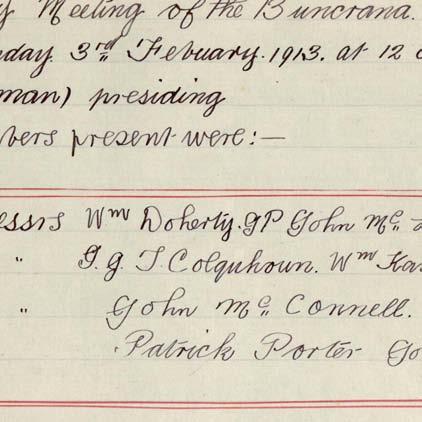 y Meeting of the Buncrana.
day. 3rd Febuary. 1913. at 12
man) presiding
bers present were:—
essrs Wm Doherty. JP John Mc
" J. J. T. Colquhoun. Wm
" John Mc Connell.
Patrick Porter